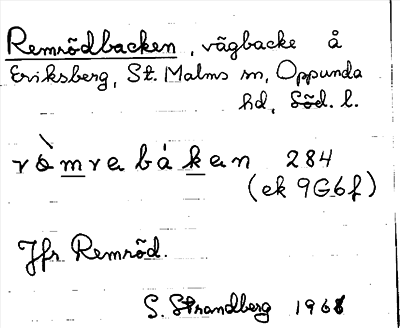 Remrödbacken, vägbacke å
Eriksberg, St. Malms sn, Oppunda
hd, Söd. l.
ròmrebákan 284
(ek 9G6f)
Jfr Remröd.
S. Strandberg 1968